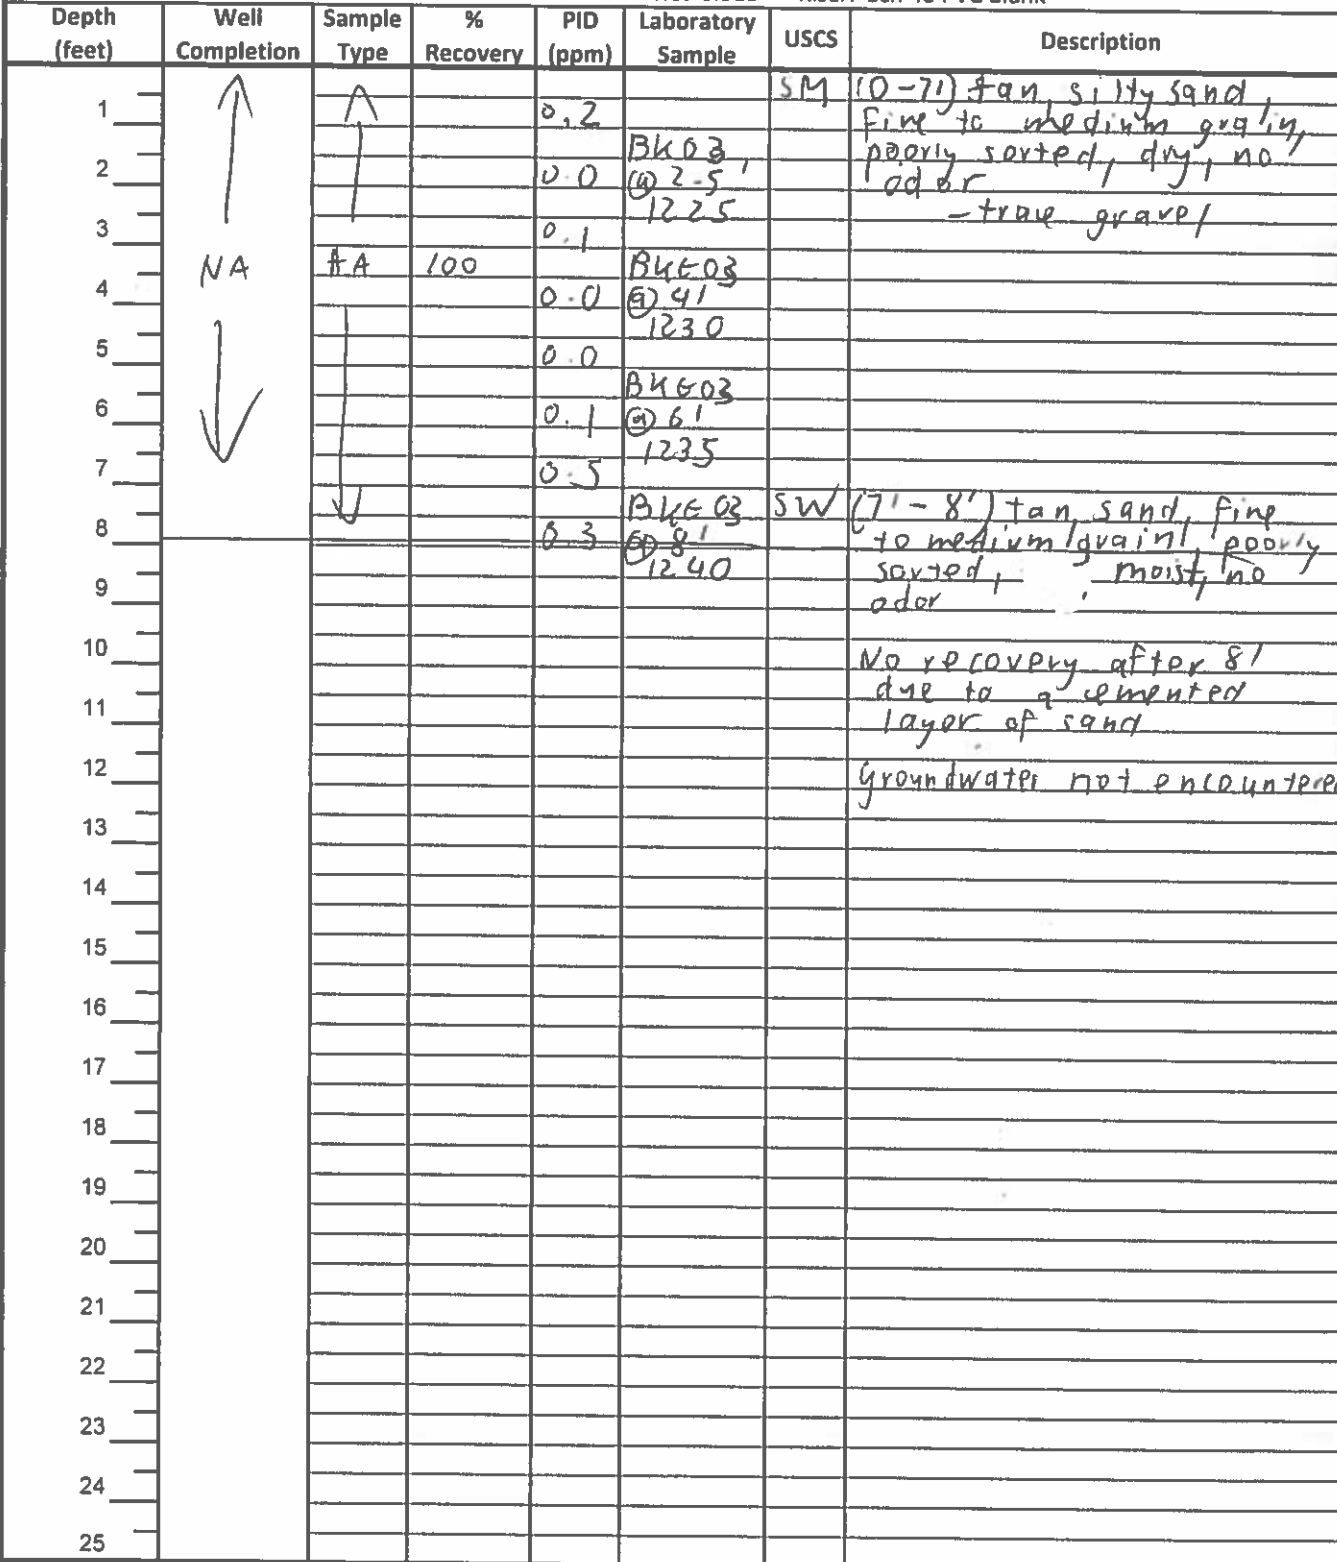 Depth (feet) Well Completion Sample Type % Recovery PID (ppm) Laboratory Sample USCS Description
SM (0-7') tan, silty sand,
1 0.2 fine to medium grain,
BK03, poorly sorted, dry, no
2 0.0 @ 2.5' odor
1225 - trace gravel
3 0.1
NA AA 100 BKG03
4 0.0 @ 4'
1230
5 0.0
BKG03
6 0.1 @ 6'
1235
7 0.5
BKG03 SW (7'-8') tan, sand, fine
8 0.3 @ 8' to medium grain, poorly
1240 sorted, moist, no
9 odor
10 No recovery after 8'
due to a cemented
11 layer of sand
12 Groundwater not encountere
13
14
15
16
17
18
19
20
21
22
23
24
25